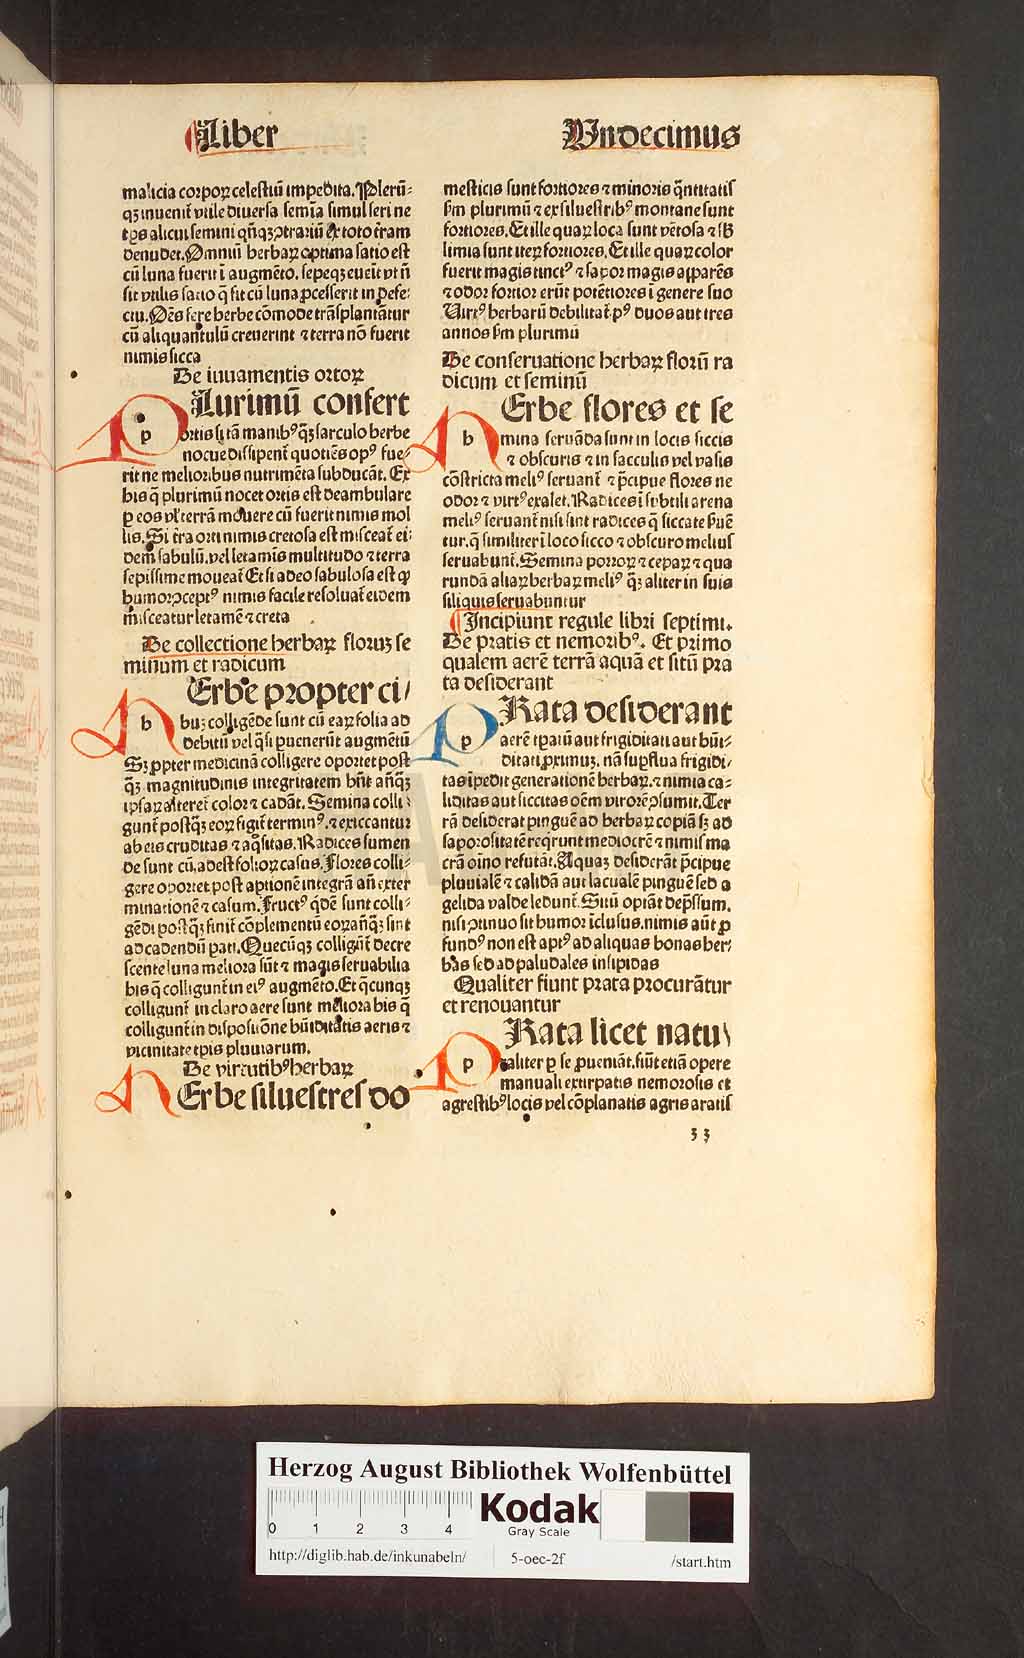 Liber Undecimus
malicia corporꝝ celestiū impedita. Plerū-
qꝫ inuenit̄ vtile diuersa semīa simul seri ne
tp̄s alicui semini qn̄qꝫ ꝯtrariū ex toto trāꝫ
denudet. Omniū herbaꝝ optima satio est
cū luna fuerit ī augmēto. sepeqꝫ eueīt vt n̄
sit vtilis satio q̄ fit cū luna ꝓcesserit in defe-
ctu. Oēs fere herbe cōmode trāsplantātur
cū aliquantulū creuerint ⁊ terra nō fuerit
nimis sicca
De iuuamentis ortoꝝ
pLurimū confert
ortis si tā manibꝰ qꝫ sarculo herbe
nocue dissipent̄ quotiēs opꝰ fue-
rit ne melioribus nutrimēta subducāt. Ex
his q̄ plurimū nocet ortis est deambulare
ꝑ eos vl̓ terrā mouere cū fuerit nimis mol
lis. Si tr̄a orti nimis cretosa est misceat̄ ei-
dem sabulū. vel letamīs multitudo ⁊ terra
sepissime moueat̄ Et si adeo sabulosa est ꝙ
humor ꝯceptꝰ nimis facile resoluat̄ eidem
misceatur letamē ⁊ creta
De collectione herbaꝝ floruꝫ se
minum et radicum
hErbe propter ci/
buꝫ colligēde sunt cū eaꝝ folia ad
debitū vel q̄si ꝑuenerūt augmētū
Sꝫ ꝓpter medicinā colligere oportet post
qꝫ magnitudinis integritatem hn̄t an̄qꝫ
ipsaꝝ alteret̄ color ⁊ cadāt. Semina colli
gunt̄ postqꝫ eoꝝ figit̄ terminꝰ. ⁊ exiccantur
ab eis cruditas ⁊ aq̄sitas. Radices sumen
de sunt cū. adest folioꝝ casus. Flores colli-
gere oportet post aptionē integrā an̄ exter
minationē ⁊ casum. Fructꝰ qd̄e sunt colli-
gēdi postqꝫ finit̄ cōplementū eoꝝ an̄qꝫ sint
ad cadendū ꝑati. Quecūqꝫ colligūt̄ decre
scente luna meliora sūt ⁊ magis seruabilia
his q̄ colligunt̄ in eiꝰ augmēto. Et q̄cunqꝫ
colligunt̄ in claro aere sunt meliora his q̄
colligunt̄ in dispositiōne hūiditatis aeris ⁊
vicinitate tp̄is pluuiarum.
De virtutibꝰ herbaꝝ
hErbe siluestres do
mesticis sunt fortiores ⁊ minoris q̄ntitatis
ẜm plurimū ⁊ ex siluestribꝰ montane sunt
fortiores. Et ille quaꝝ loca sunt vētosa ⁊ sb̄
limia sunt iteꝝ fortiores. Et ille quaꝝ color
fuerit magis tinctꝰ ⁊ sapor magis apparēs
⁊ odor fortior erūt potētiores ī genere suo
Uirtꝰ herbarū debilitat̄ pꝰ duos aut tres
annos ẜm plurimū
De conseruatione herbaꝝ florū ra
dicum et seminū
hErbe flores et se
mina seruāda sunt in locis siccis
⁊ obscuris ⁊ in sacculis vel vasis
cōstricta meliꝰ seruant̄ ⁊ p̄cipue flores ne
odor ⁊ virtꝰ exalet. Radices ī subtili arena
meliꝰ seruant̄ nisi sint radices q̄ siccate ẜuē
tur. q̄ similiter ī loco sicco ⁊ obscuro melius
seruabunt̄. Semina porroꝝ ⁊ cepaꝝ ⁊ qua
rundā aliaꝝ herbaꝝ meliꝰ qꝫ aliter in suis
siliquis seruabuntur
Incipiunt regule libri septimi.
De pratis et nemoribꝰ. Et primo
qualem aerē terrā aquā et sitū pra
ta desiderant
pRata desiderant
aerē tꝑatū aut frigiditati aut hūi-
ditati ꝓximuꝫ. nā suꝑflua frigidi-
tas īpedit generationē herbaꝝ. ⁊ nimia ca-
liditas aut siccitas oēm virorē ꝯsumit. Ter
rā desiderat pinguē ad herbaꝝ copiā sꝫ ad
saporositatē reqrunt mediocrē ⁊ nimis ma
crā oīno refutāt. Aquaꝫ desiderāt p̄cipue
pluuialē ⁊ calidā aut lacualē pinguē sed a
gelida valde ledunt̄. Sitū optāt dep̄ssum.
nisi ꝯtinuo sit humor īclusus. nimis aūt ꝓ
fundꝰ non est aptꝰ ad aliquas bonas her-
bas sed ad paludales insipidas
Qualiter fiunt prata procurātur
et renouantur
pRata licet natu
raliter ꝑ se ꝓueniāt. fiūt etiā opere
manuali extirpatis nemorosis et
agrestibꝰ locis vel cōplanatis agris aratis
33
Herzog August Bibliothek Wolfenbüttel
0 1 2 3 4
Kodak
Gray Scale
http://diglib.hab.de/inkunabeln/ 5-oec-2f /start.htm